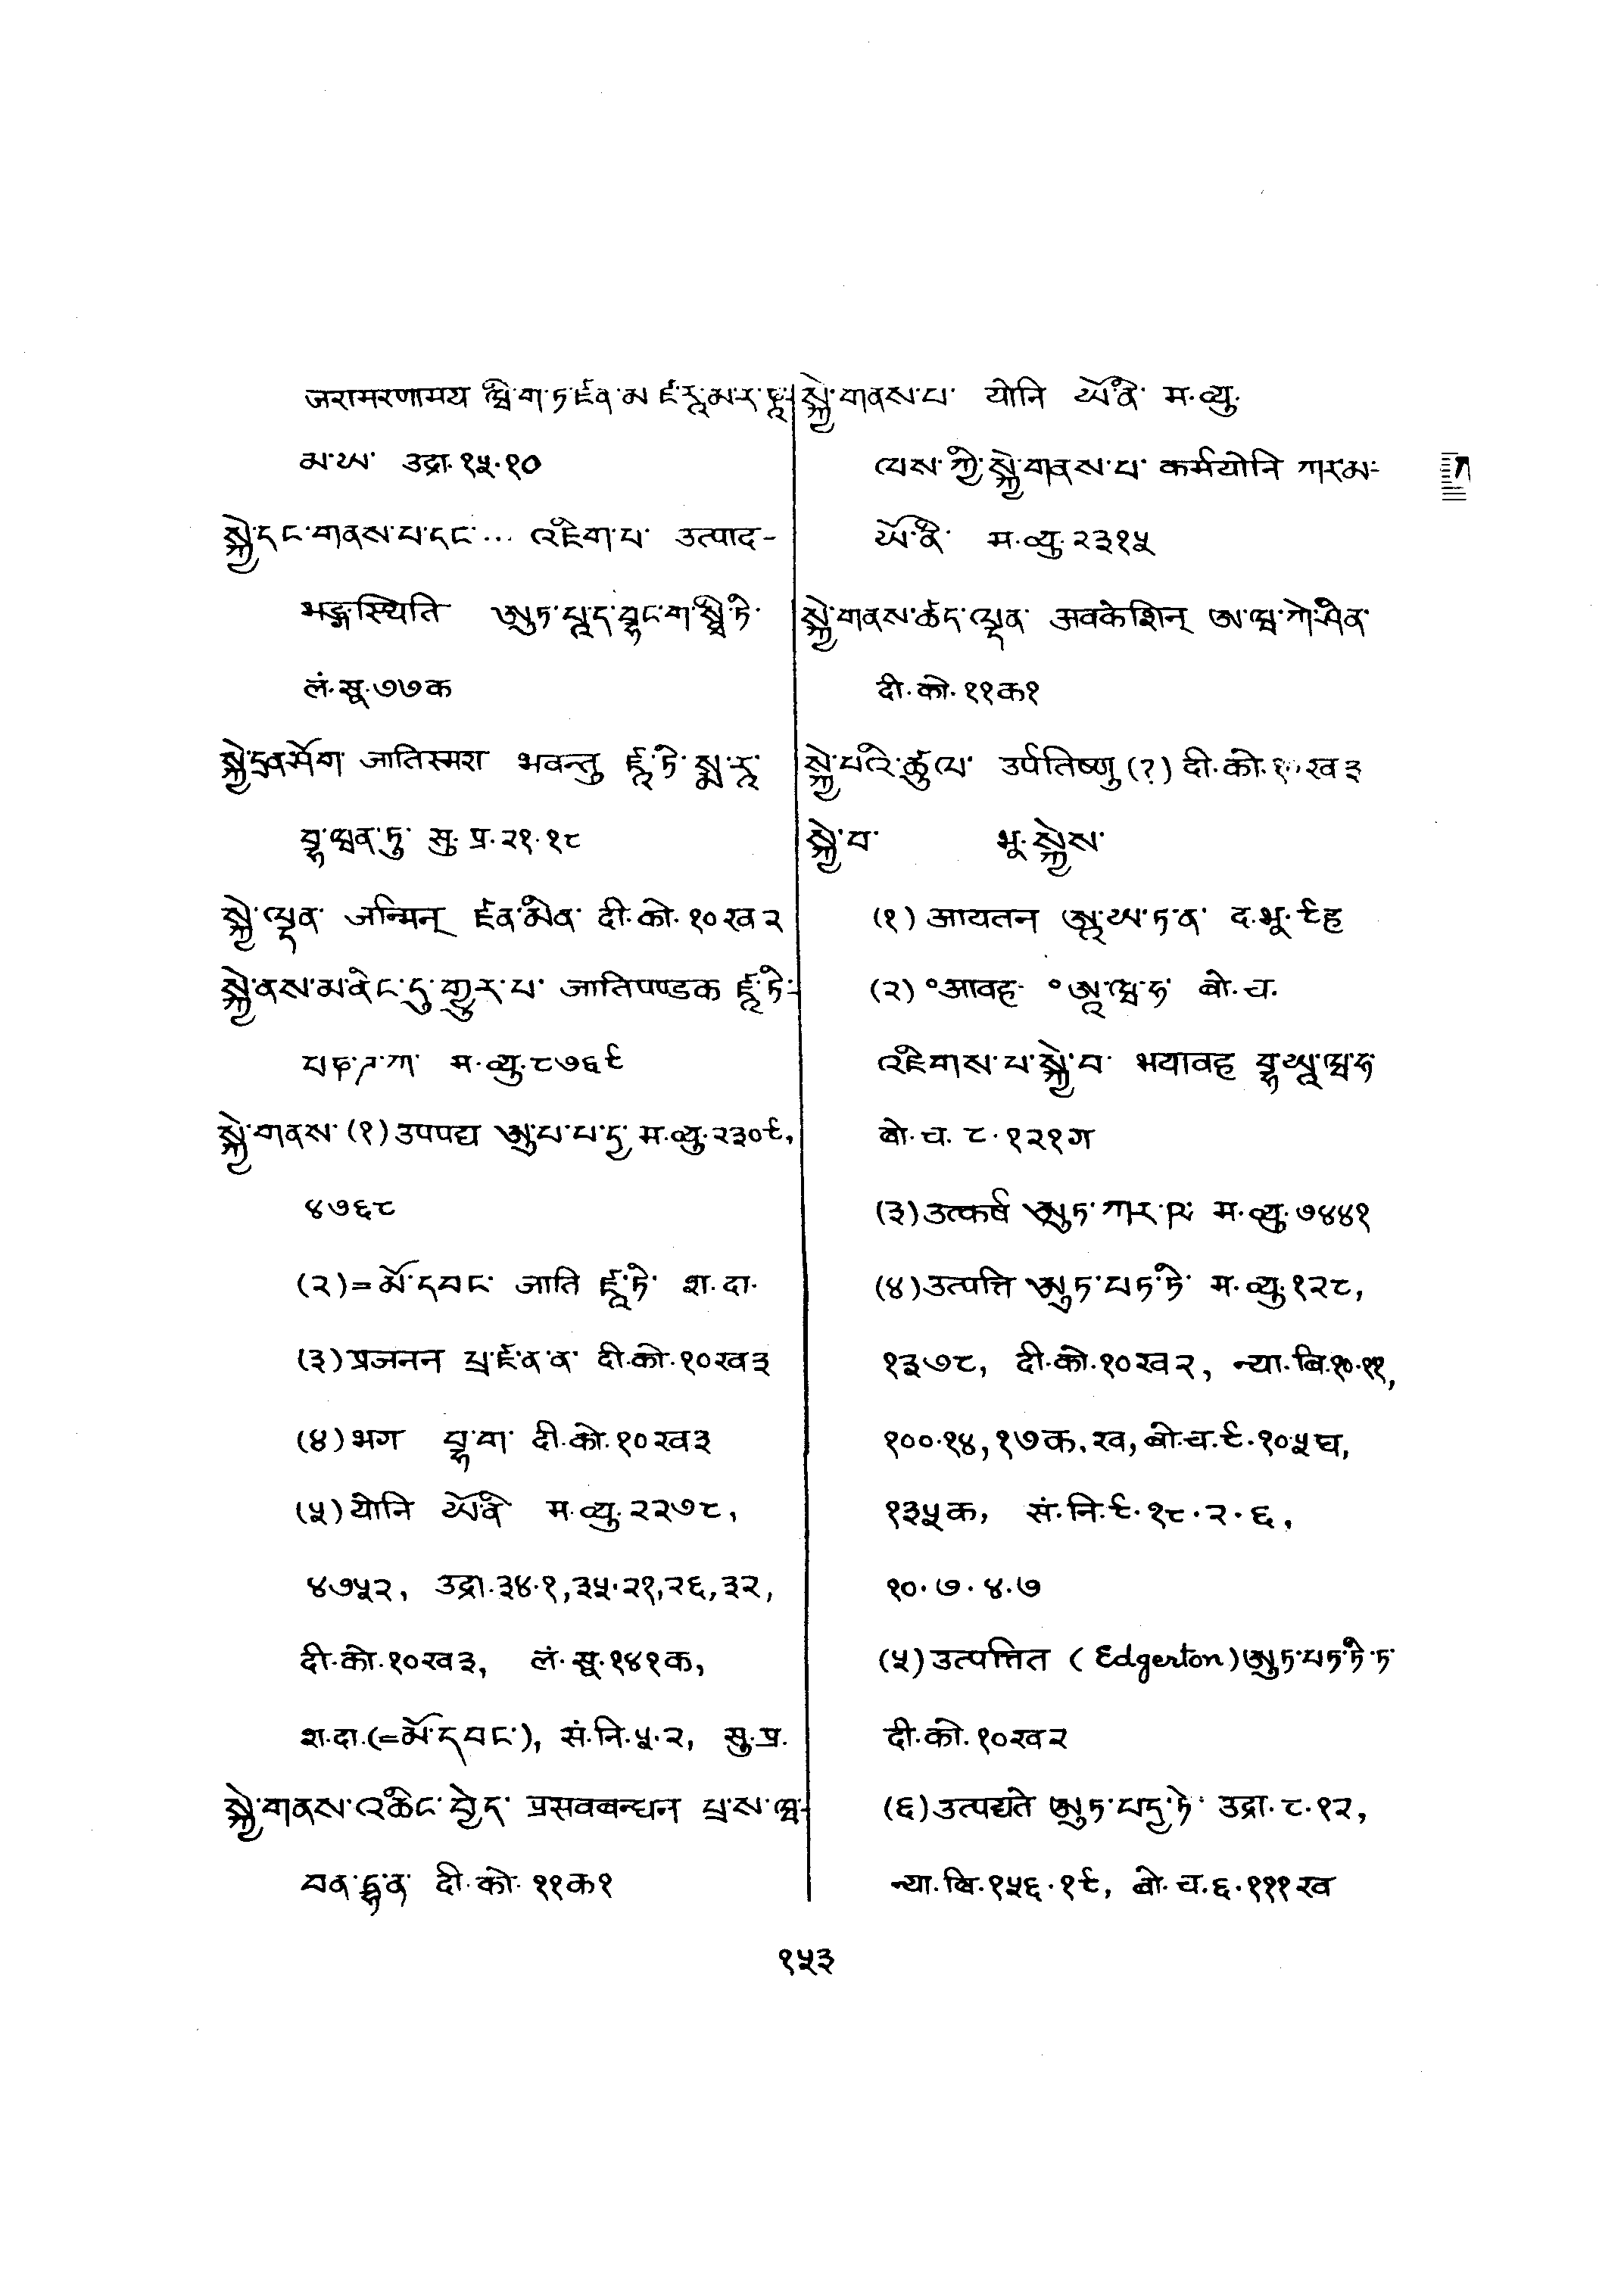 जरामरणामय ཝི་ག་ཏ་ཛན་མ ཛ་རཱ་མ་ར་ཎཱ
མ་ཡ་ उद्रा.१५.१०
སྐྱེ་དང་གནས་པ་དང་... འཇིག་པ་ उत्पाद-
भङ्गस्थिति ཨུཏ་པཱད་བྷང་ག་སྠི་ཏི་
लं.सू.७७क
སྐྱེ་དྲན་ཤོག་ जातिस्मरा भवन्तु ཛཱ་ཏི་སྨ་རཱ་
བྷ་ཝན་ཏུ་ सु.प्र.२१.१८
སྐྱེ་ལྡན་ जन्मिन् ཛན་མིན་ दी.को.१०ख२
སྐྱེ་ནས་མ་ནིང་དུ་གྱུར་པ་ जातिपण्डक ཛཱ་ཏི-
པཎ་ཌ་ཀ་ म.व्यु.८७६९
སྐྱེ་གནས་ (१) उपपद्य ཨུ་པ་པ་དྱ་ म.व्यु.२३०९,
४७६८
(२)=མོ་དབང་ जाति ཛཱ་ཏི་ श.दा.
(३) प्रजनन པྲ་ཛ་ན་ན་ दी.को.१०ख३
(४) भग བྷ་ག་ दी.को.१०ख३
(५) योनि ཡོ་ནི་ म.व्यु.२२७८,
४७५२, उद्रा.३४.१,३५.२१,२६,३२,
दी.को.१०ख३, लं.सू.१४१क,
श.दा.(=མོ་དབང་), सं.नि.५.२, सु.प्र.
སྐྱེ་གནས་འཆིང་བྱེད་ प्रसवबन्धन པྲ་ས་ཝ-
བན་དྷ་ན་ दी.को.११क१
སྐྱེ་གནས་པ་ योनि ཡོ་ནི་ म.व्यु.
ལས་ཀྱི་སྐྱེ་གནས་པ་ कर्मयोनि ཀར་མ-
ཡོ་ནི་ म.व्यु.२३१५
སྐྱེ་གནས་ཆད་ལྡན་ अवकेशिन् ཨ་ཝ་ཀེ་ཤིན་
दी.को.११क१
སྐྱེ་པའི་ཚུལ་ (?) दी.को.
སྐྱེ་བ་ भू. སྐྱེས་
(१) आयतन ཨཱ་ཡ་ཏ་ན་ द.भू.९ह
(२) °आवह °ཨཱ་ཝ་ཧ་ बो.च.
འཇིགས་པ་སྐྱེ་བ་ भयावह བྷ་ཡཱ་ཝ་ཧ
बो.च.८.१२१ग
(३) उत्कर्ष ཨུཏ་ཀར་ཥ་ म.व्यु.७४४१
(४) उत्पत्ति ཨུཏ་པཏ་ཏི་ म.व्यु.१२८,
१३७८, दी.को.१०ख२, न्या.बि.१०.११,
१००.१४,१७क.ख,बो.च.९.१०५घ,
१३५क, सं.नि.९.१८.२.६,
१०.७.४.७
(५) उत्पत्तित (Edgerton) ཨུཏ་པཏ་ཏི་ཏ་
दी.को.१०ख२
(६) उत्पद्यते ཨུཏ་པདྱ་ཏེ་ उद्रा.८.१२,
न्या.बि.१५६.१९, बो.च.६.१११ख
१५३